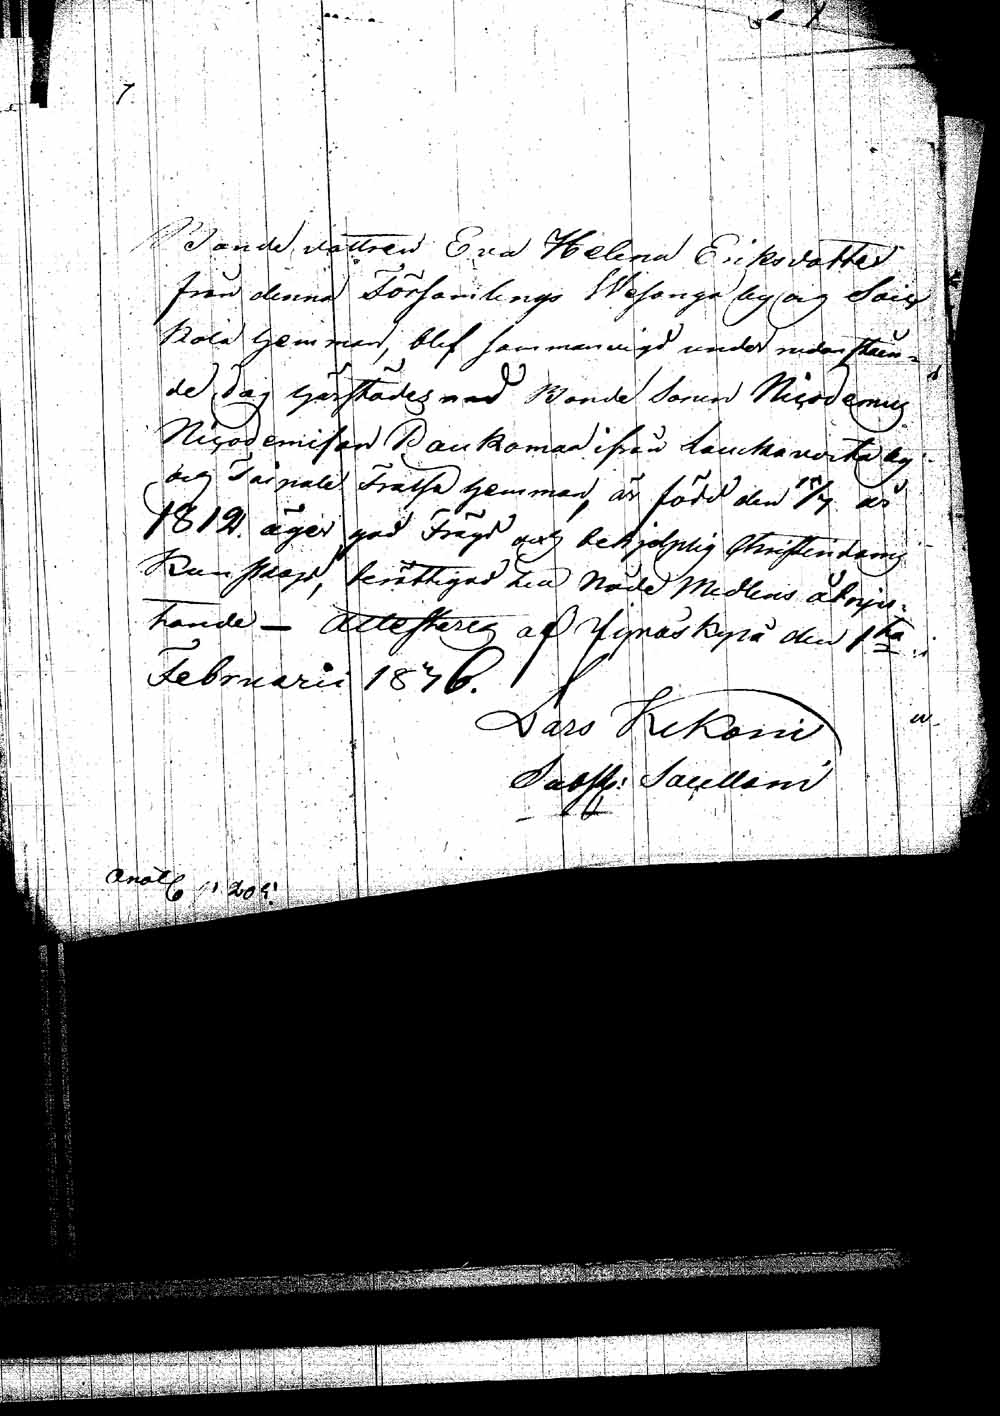 7
Bonde dottren Eva Helena Eriksdotter
från denna Församlings Wesanga by og
Kola hemman, blef sammanvigd under nedanståen-
de dag härstädes med Bonde Sonen Nicodemus
Nicodemison Daukoman ifrån by
og Taipale Fratsa hemman, är född den 15/7 år
1812. äger god Frägd och behjelplig Christendoms
Kunskap, berättigad till Nåde Medlens åtnju-
tande — Attesteras af Yijmäskyrå den 1ta
Februarii 1836.
Lars Kekoni